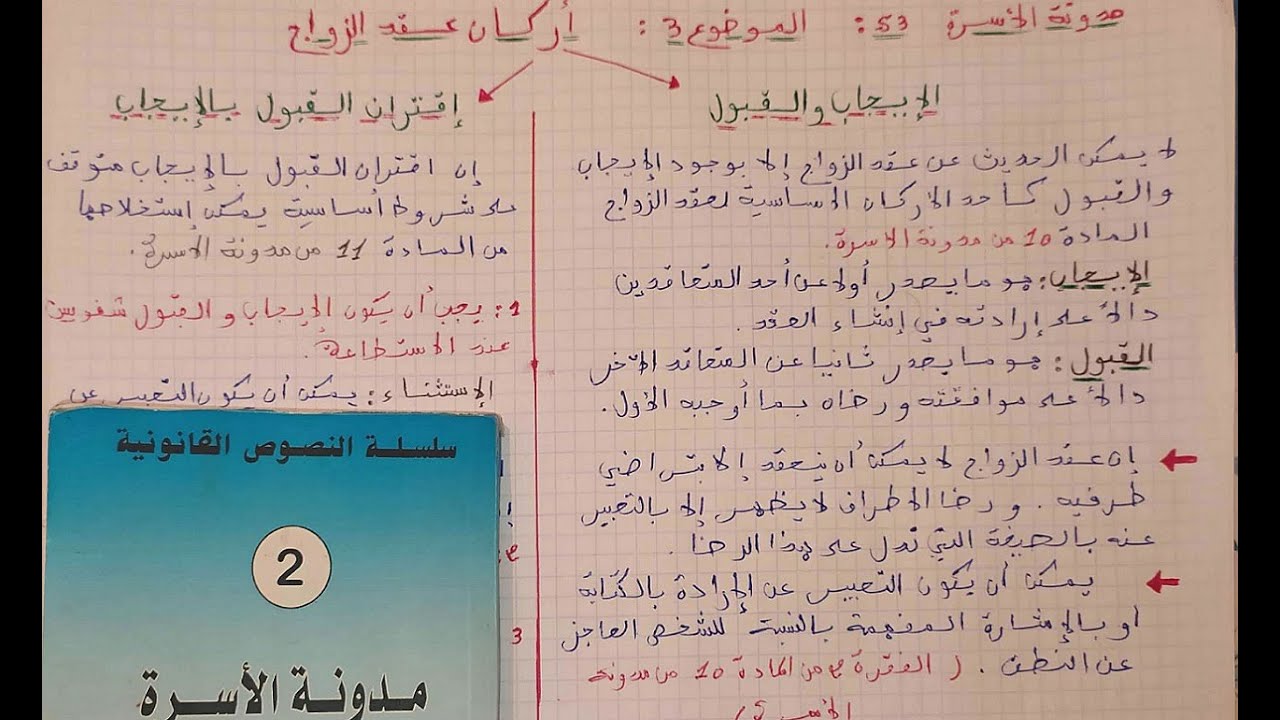 مدونة الأسرة S3 : الموضوع 3 : أركان عقد الزواج
الإيجاب والقبول
لا يمكن الحديث عن عقد الزواج إلا بوجود الإيجاب
والقبول كأحد الاركان الاساسية لعقد الزواج
المادة 10 من مدونة الاسرة.
الإيجاب : هو ما يصدر أولا عن أحد المتعاقدين
دالاً على إرادته في إنشاء العقد .
القبول : هو ما يصدر ثانيا عن المتعاقد الآخر
دالاً على موافقته و رضاه بما أوجبه الأول.
إن عقد الزواج لا يمكن أن ينعقد إلا بتراضي
طرفيه . و رضا الاطراف لا يظهر إلا بالتعبير
عنه بالصيغة التي تدل على هذا الرضا .
يمكن أن يكون التعبير عن الإرادة بالكتابة
أو بالإشارة المفهمة بالنسبة للشخص العاجز
عن النطق . ( الفقرة 2 من المادة 10 من مدونة
الأسرة )
إقتران القبول بالإيجاب
إن اقتران القبول بالإيجاب متوقف
على شروط أساسية يمكن إستخلاصها
من المادة 11 من مدونة الأسرة .
1 : يجب أن يكون الإيجاب و القبول شفويين
عند الاستطاعة .
الإستثناء : يمكن أن يكون التعبير عن
3
سلسلة النصوص القانونية
2
مدونة الأسرة